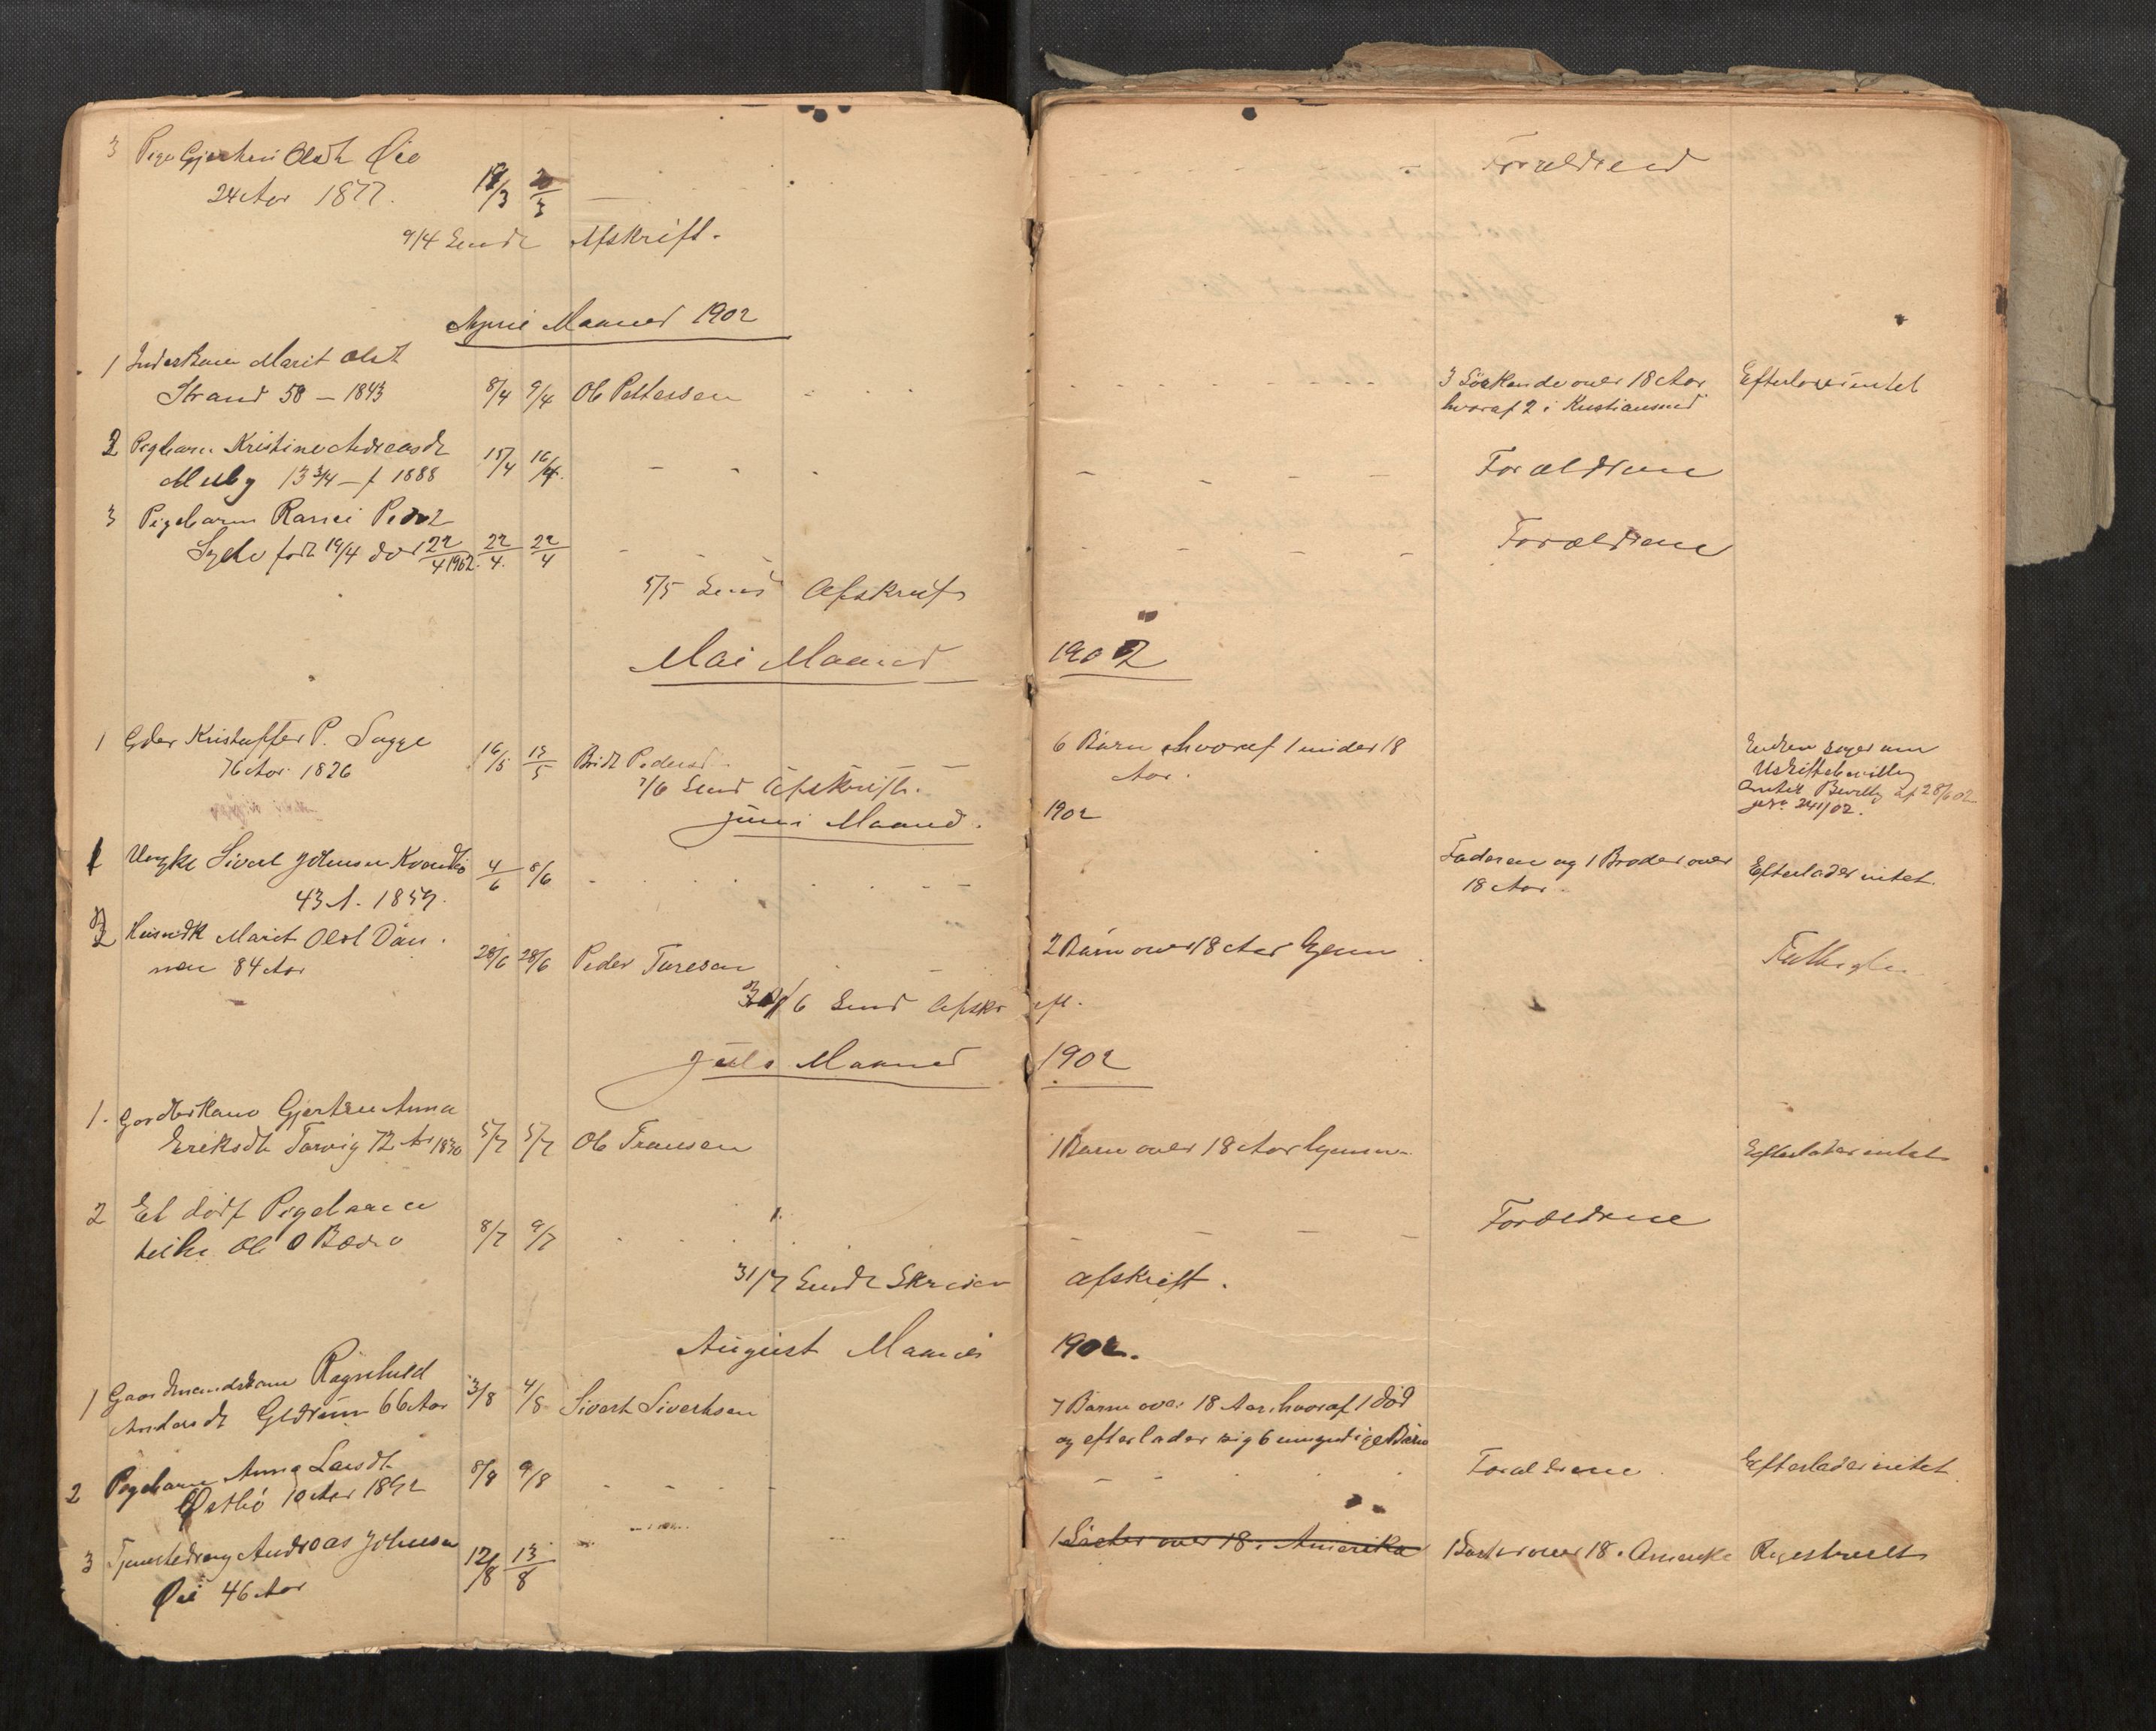 3 Pige Gjertrui Olsdt Øie Forældrene
24 Aar 1877. 19/3 20/3 —
9/4 Sendt Afskrift.
April Maaned 1902
1 Inderstkone Marit Olsdt
Strand 58 — 1843 8/4 9/4 Ole Pettersen 3 Søskende over 18 Aar Efterlod intet
hvoraf 2 i Kristiansund
2 Pigebarn Kristine Andreasdt
Melby 13 3/4 — f 1888 15/4 16/4. Forældrene
3 Pigebarn Rannei Pedersdt
født 19/4 død 22/4 1902. 22/4. 22/4 Forældrene
5/5 Send Afskrift
Mai Maaned 1902
1 Gdbr Kristoffer P. Sagge 6 Børn hvoraf 1 under 18 Enken søger om
76 Aar 1826 16/5 Brit Pedersd Aar. Uskiftebevilling
7/6 Send Afskrift. Amtets Bevilling af 28/6 02
Juni Maaned. 1902 241/02.
1 Ungkl Sivert Johnsen 4/6 8/6 Faderen og 1 Broder over Efterlader intet.
43 A. 18 Aar.
2 Marit Olsd 2 Børn over 18 Aar
84 Aar 28/6 28/6 Peder Turesen
6 Send Afskrift.
Juli Maaned 1902
1. Gjertru Anna
Eriksdt Torvig 72 Aar 1830 5/7 5/7 Ole Transen 1 Barn over 18 Aar Efterlader intet
2 Et dødf Pigebarn
Ole O Bædre 8/7 9/7 Forældrene
31/7 Sendt Skr Afskrift.
August Maaned 1902.
1 Gaardmandskone Ragnhild 3/8 4/8 Sivert Sivertsen 7 Børn over 18 Aar hvoraf 1 død
Andersdt 66 Aar og efterlader sig 6 umyndige Børn
2 Pigebarn Anna Larsdt 8/8 9/8 Forældrene Efterlader intet.
Østbø 10 Aar 1892
3 Tjenestedreng Andreas Johnsen 12/8 13/8 1 Søster over 18 i Amerika 1 Søster over 18 i Amerika Registreret
Øie 46 Aar